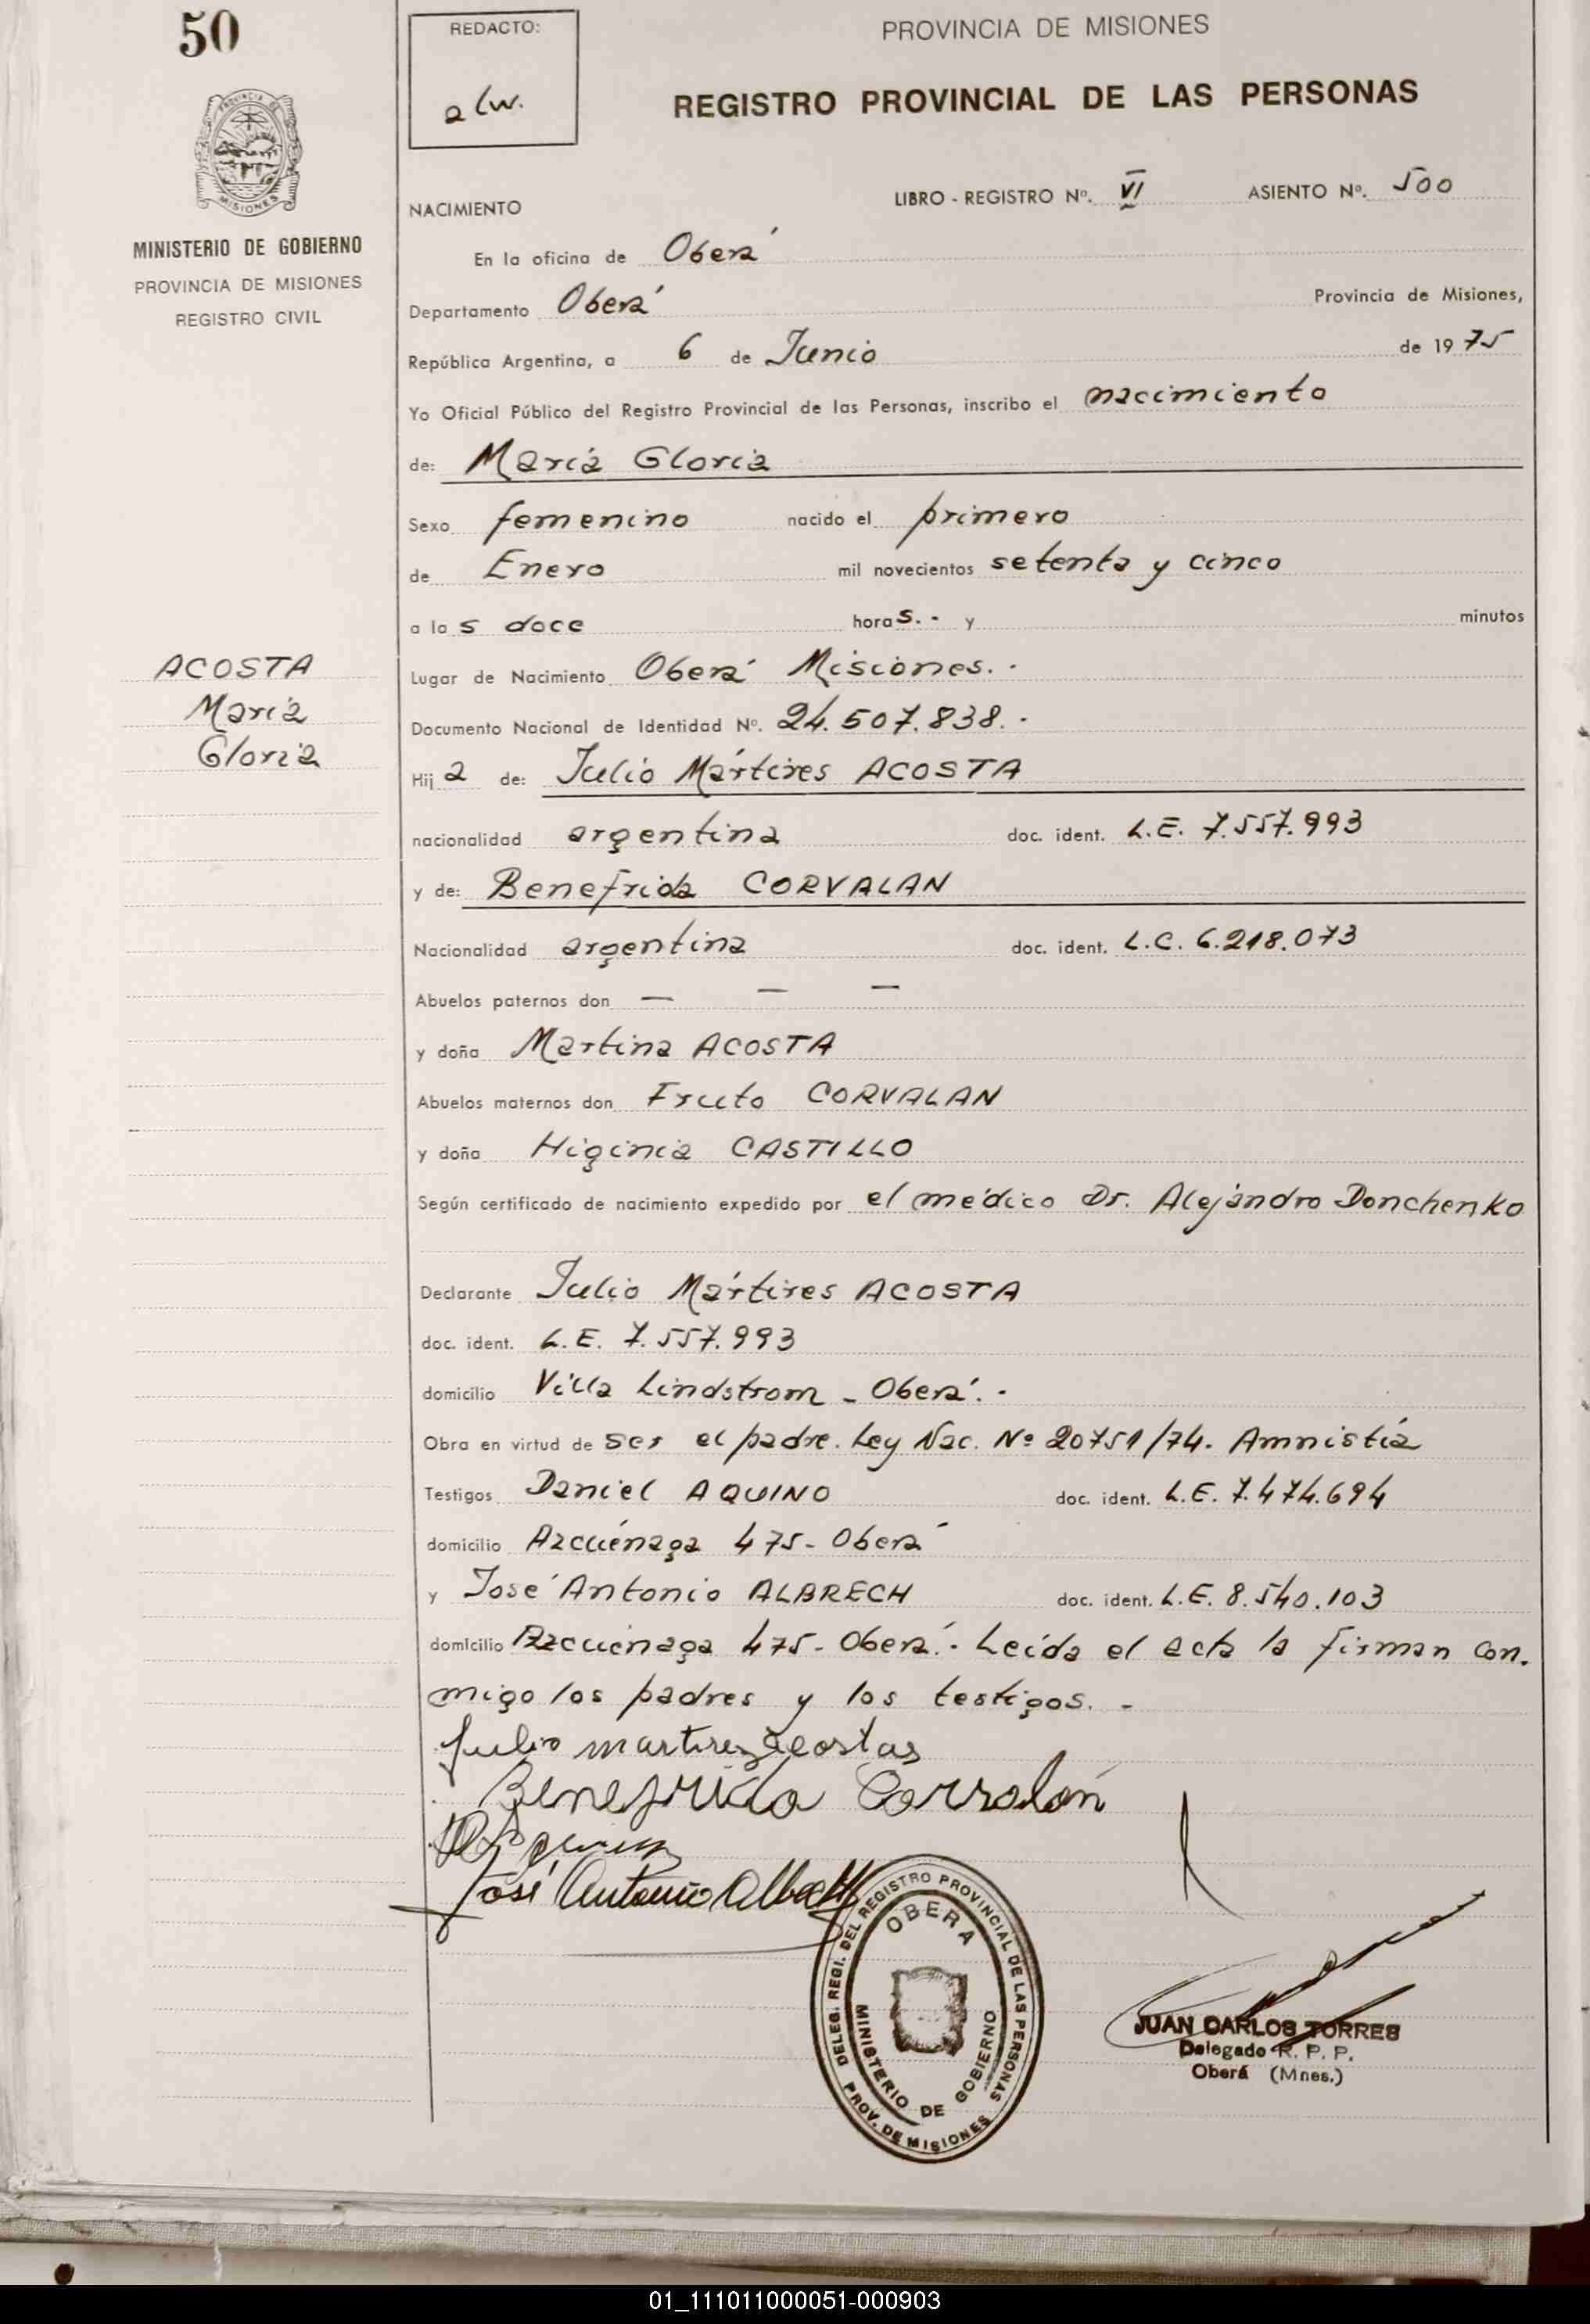 50
REDACTO:
alw.
PROVINCIA DE MISIONES
REGISTRO PROVINCIAL DE LAS PERSONAS
PROVINCIA DE MISIONES
MINISTERIO DE GOBIERNO
PROVINCIA DE MISIONES
REGISTRO CIVIL
LIBRO - REGISTRO Nº. VI ASIENTO Nº. 500
NACIMIENTO
En la oficina de Oberá
Departamento Oberá Provincia de Misiones,
República Argentina, a 6 de Junio de 1975
Yo Oficial Público del Registro Provincial de las Personas, inscribo el nacimiento
de: María Gloria
Sexo femenino nacido el primero
de Enero mil novecientos setenta y cinco
a las doce horas.- y minutos
ACOSTA
María
Gloria
Lugar de Nacimiento Oberá Misiones.-
Documento Nacional de Identidad Nº. 24.507.838.-
Hija de: Julio Mártires ACOSTA
nacionalidad argentina doc. ident. L.E. 7.557.993
y de: Benefrida CORVALAN
Nacionalidad argentina doc. ident. L.C. 6.218.073
Abuelos paternos don — — —
y doña Martina ACOSTA
Abuelos maternos don Fruto CORVALAN
y doña Higinia CASTILLO
Según certificado de nacimiento expedido por el médico Dr. Alejandro Donchenko
Declarante Julio Mártires ACOSTA
doc. ident. L.E. 7.557.993
domicilio Villa Lindstrom - Oberá.-
Obra en virtud de ser el padre. Ley Nac. Nº 20751/74. Amnistía
Testigos Daniel AQUINO doc. ident. L.E. 7.474.694
domicilio Azcuénaga 475- Oberá
y José Antonio ALBRECH doc. ident. L.E. 8.540.103
domicilio Azcuénaga 475- Oberá.- Leída el acta la firman con.
migo los padres y los testigos.-
Julio martires Acostas
Benefrida Corvalán
José Antonio Albrech
DELEG. REGI. DEL REGISTRO PROVINCIAL DE LAS PERSONAS
OBERA
MINISTERIO DE GOBIERNO
PROV. DE MISIONES
JUAN CARLOS TORRES
Delegado R. P. P.
Oberá (Mnes.)
01_111011000051-000903